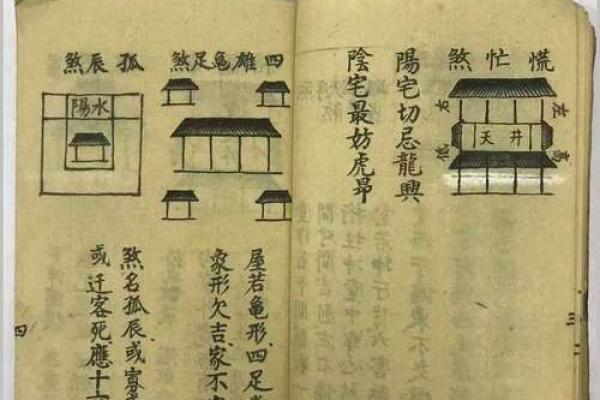 慌忙煞
左
高
天井
右
低
陽宅切忌龍興
陰宅最妨虎昂
四雄龜足煞
屋若龜形四足
象形欠吉家不
孤辰煞
水陽
煞名孤辰或寡
或迁客死應十
四